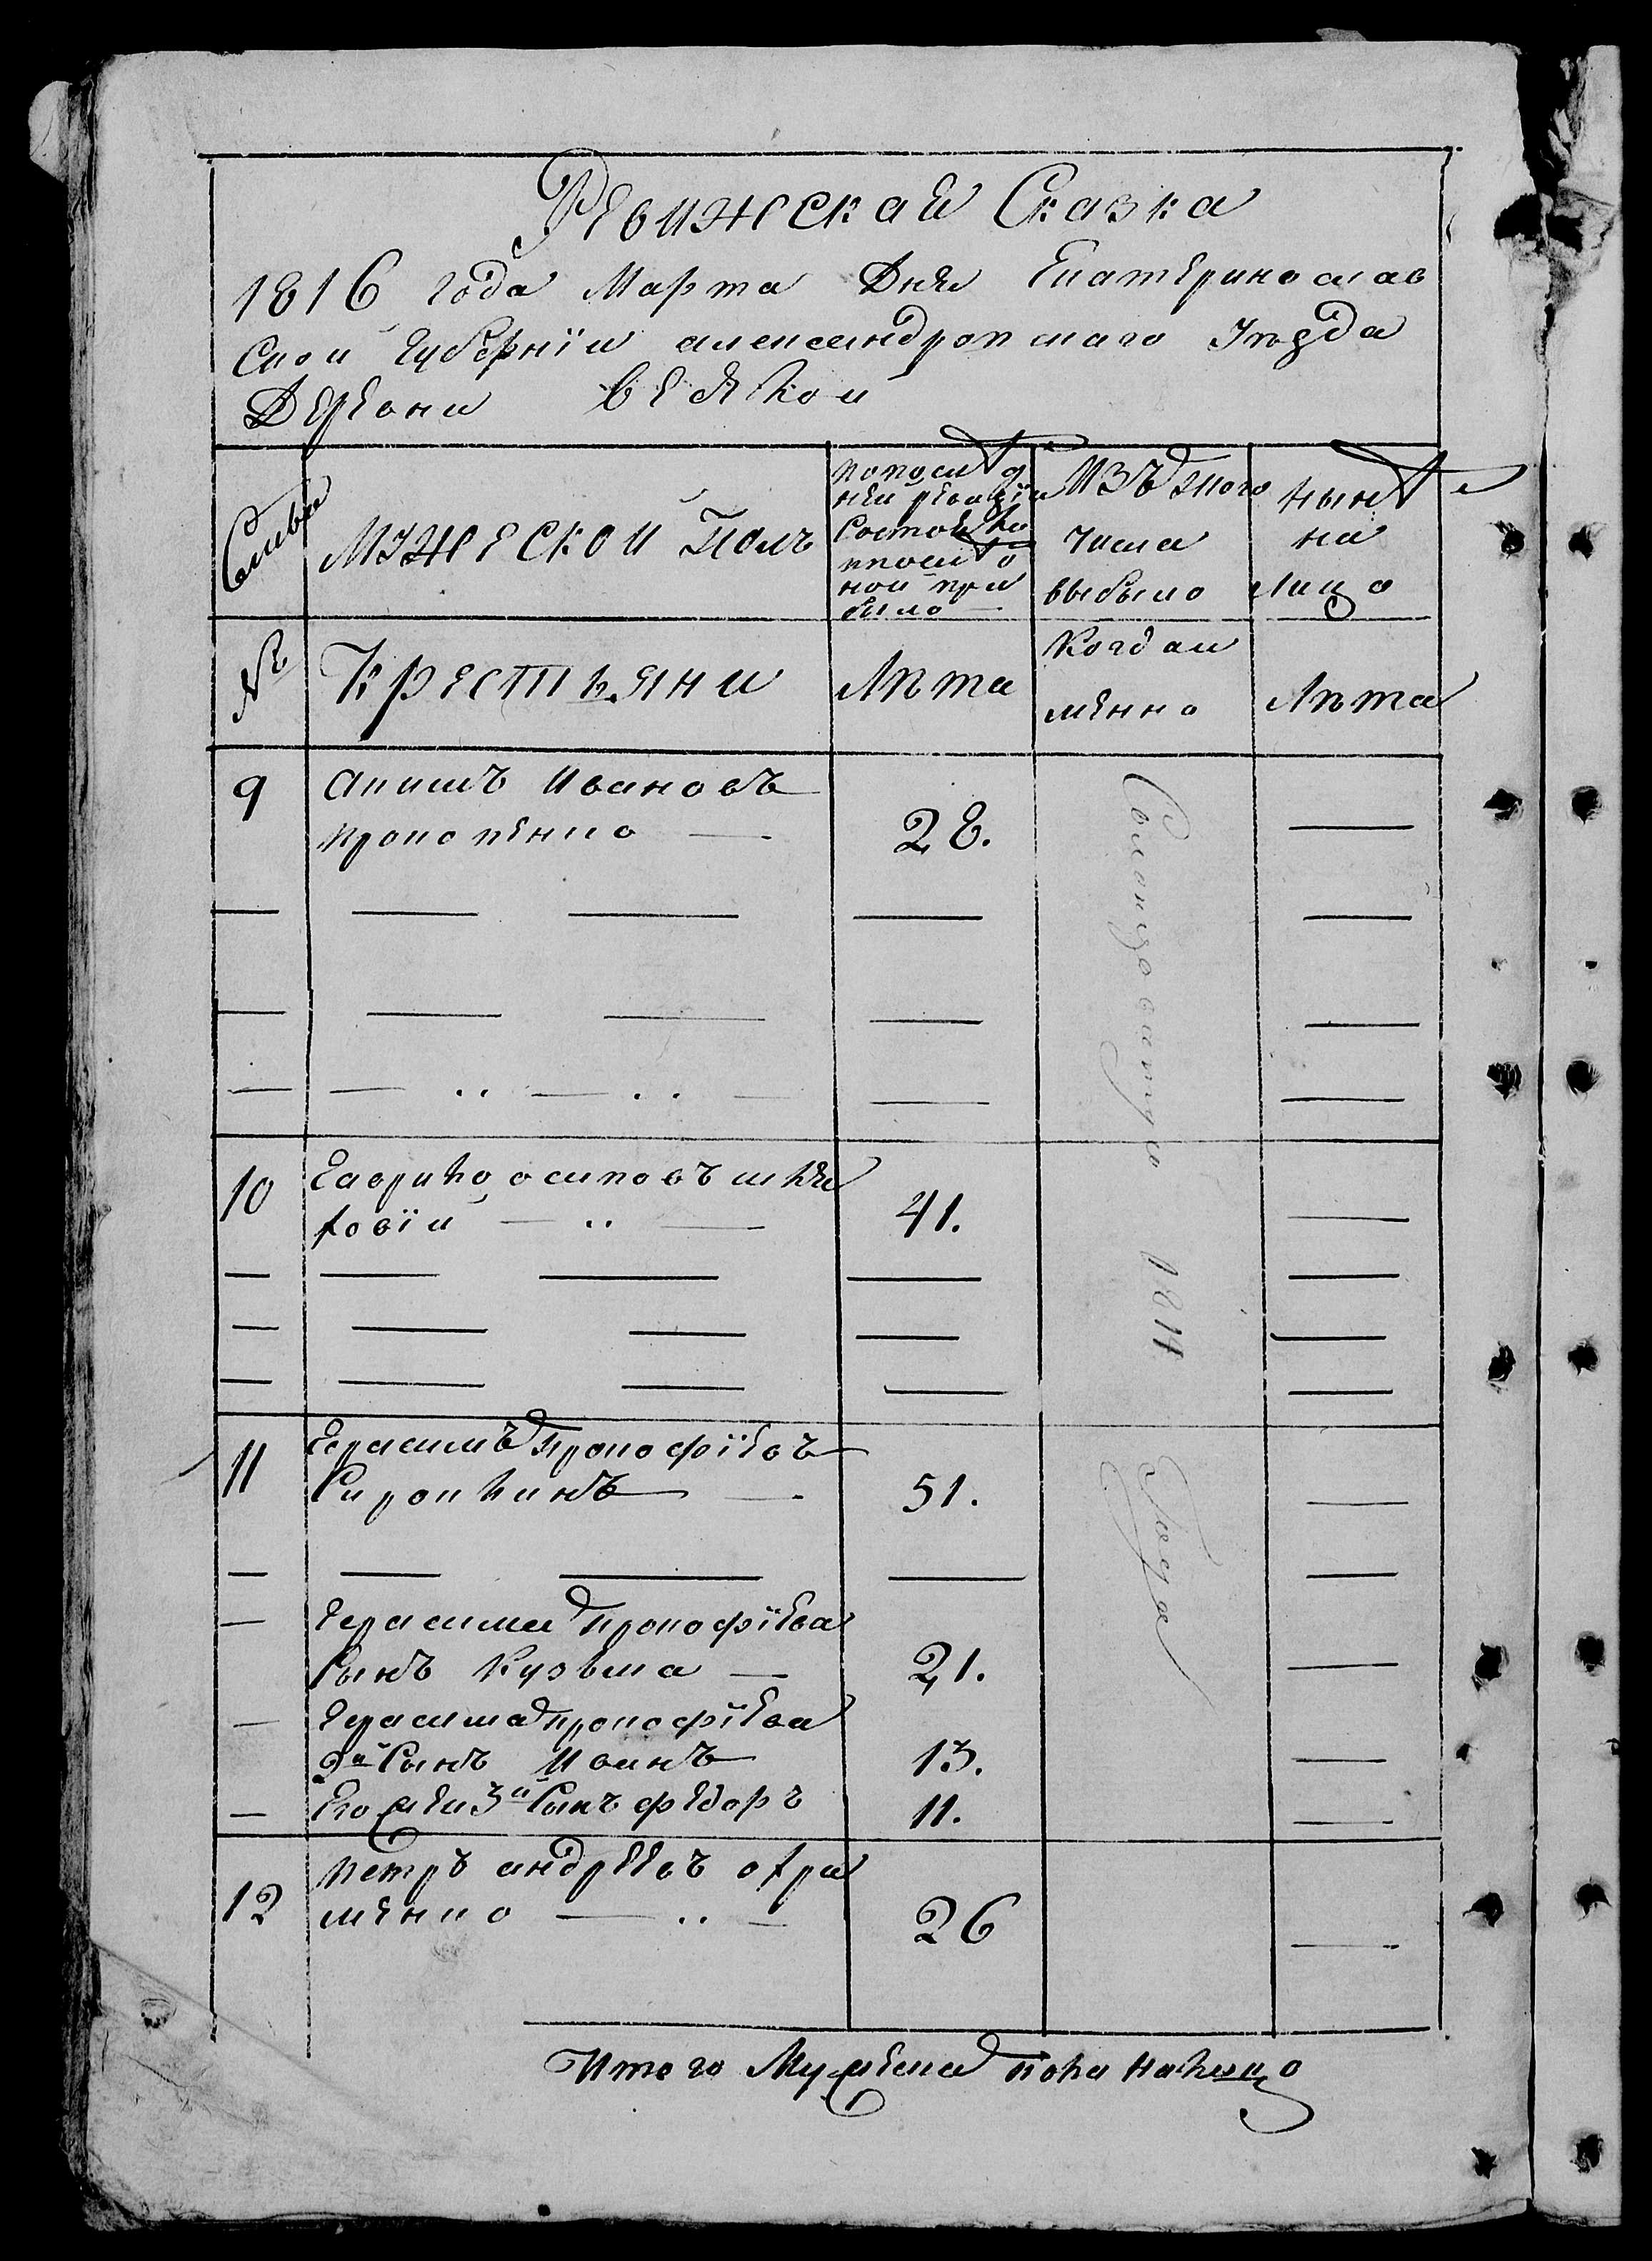 Ревижская Сказка
1816 года Марта Дня Екатеринослав
Ской губернїи александровскаго Уѣзда
Деревни
Семьи
Мужеской Полъ
попослѣд
ней ревизїи
Состояло
ипослѣо
ной при
было —
ИЗЪ того
числа
выбыло
нынѣ
на
лицо
№
Крестьяни
Лѣта
Когда и
менно
Лѣта
9 Акимъ Ивановъ
Прокопенко — 28. —
10 Гаврило осиповъ шкля
ровїй — .. — 41. —
11 Герасимъ Прокофїевъ
51. —
Герасима Прокофїева
Сынъ Кузьма — 21. —
Герасима прокофїева
2й Сынъ Иванъ 13. —
Его же 3й Сынъ федоръ 11. —
12 Петръ андреевъ охри
менко — .. — 26 —
1814
Года
Итого Мужеска пола налицо